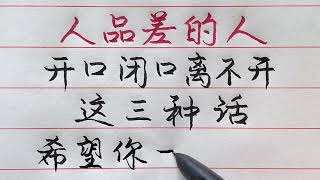 人品差的人
开口闭口离不开
这三种话
希望你一